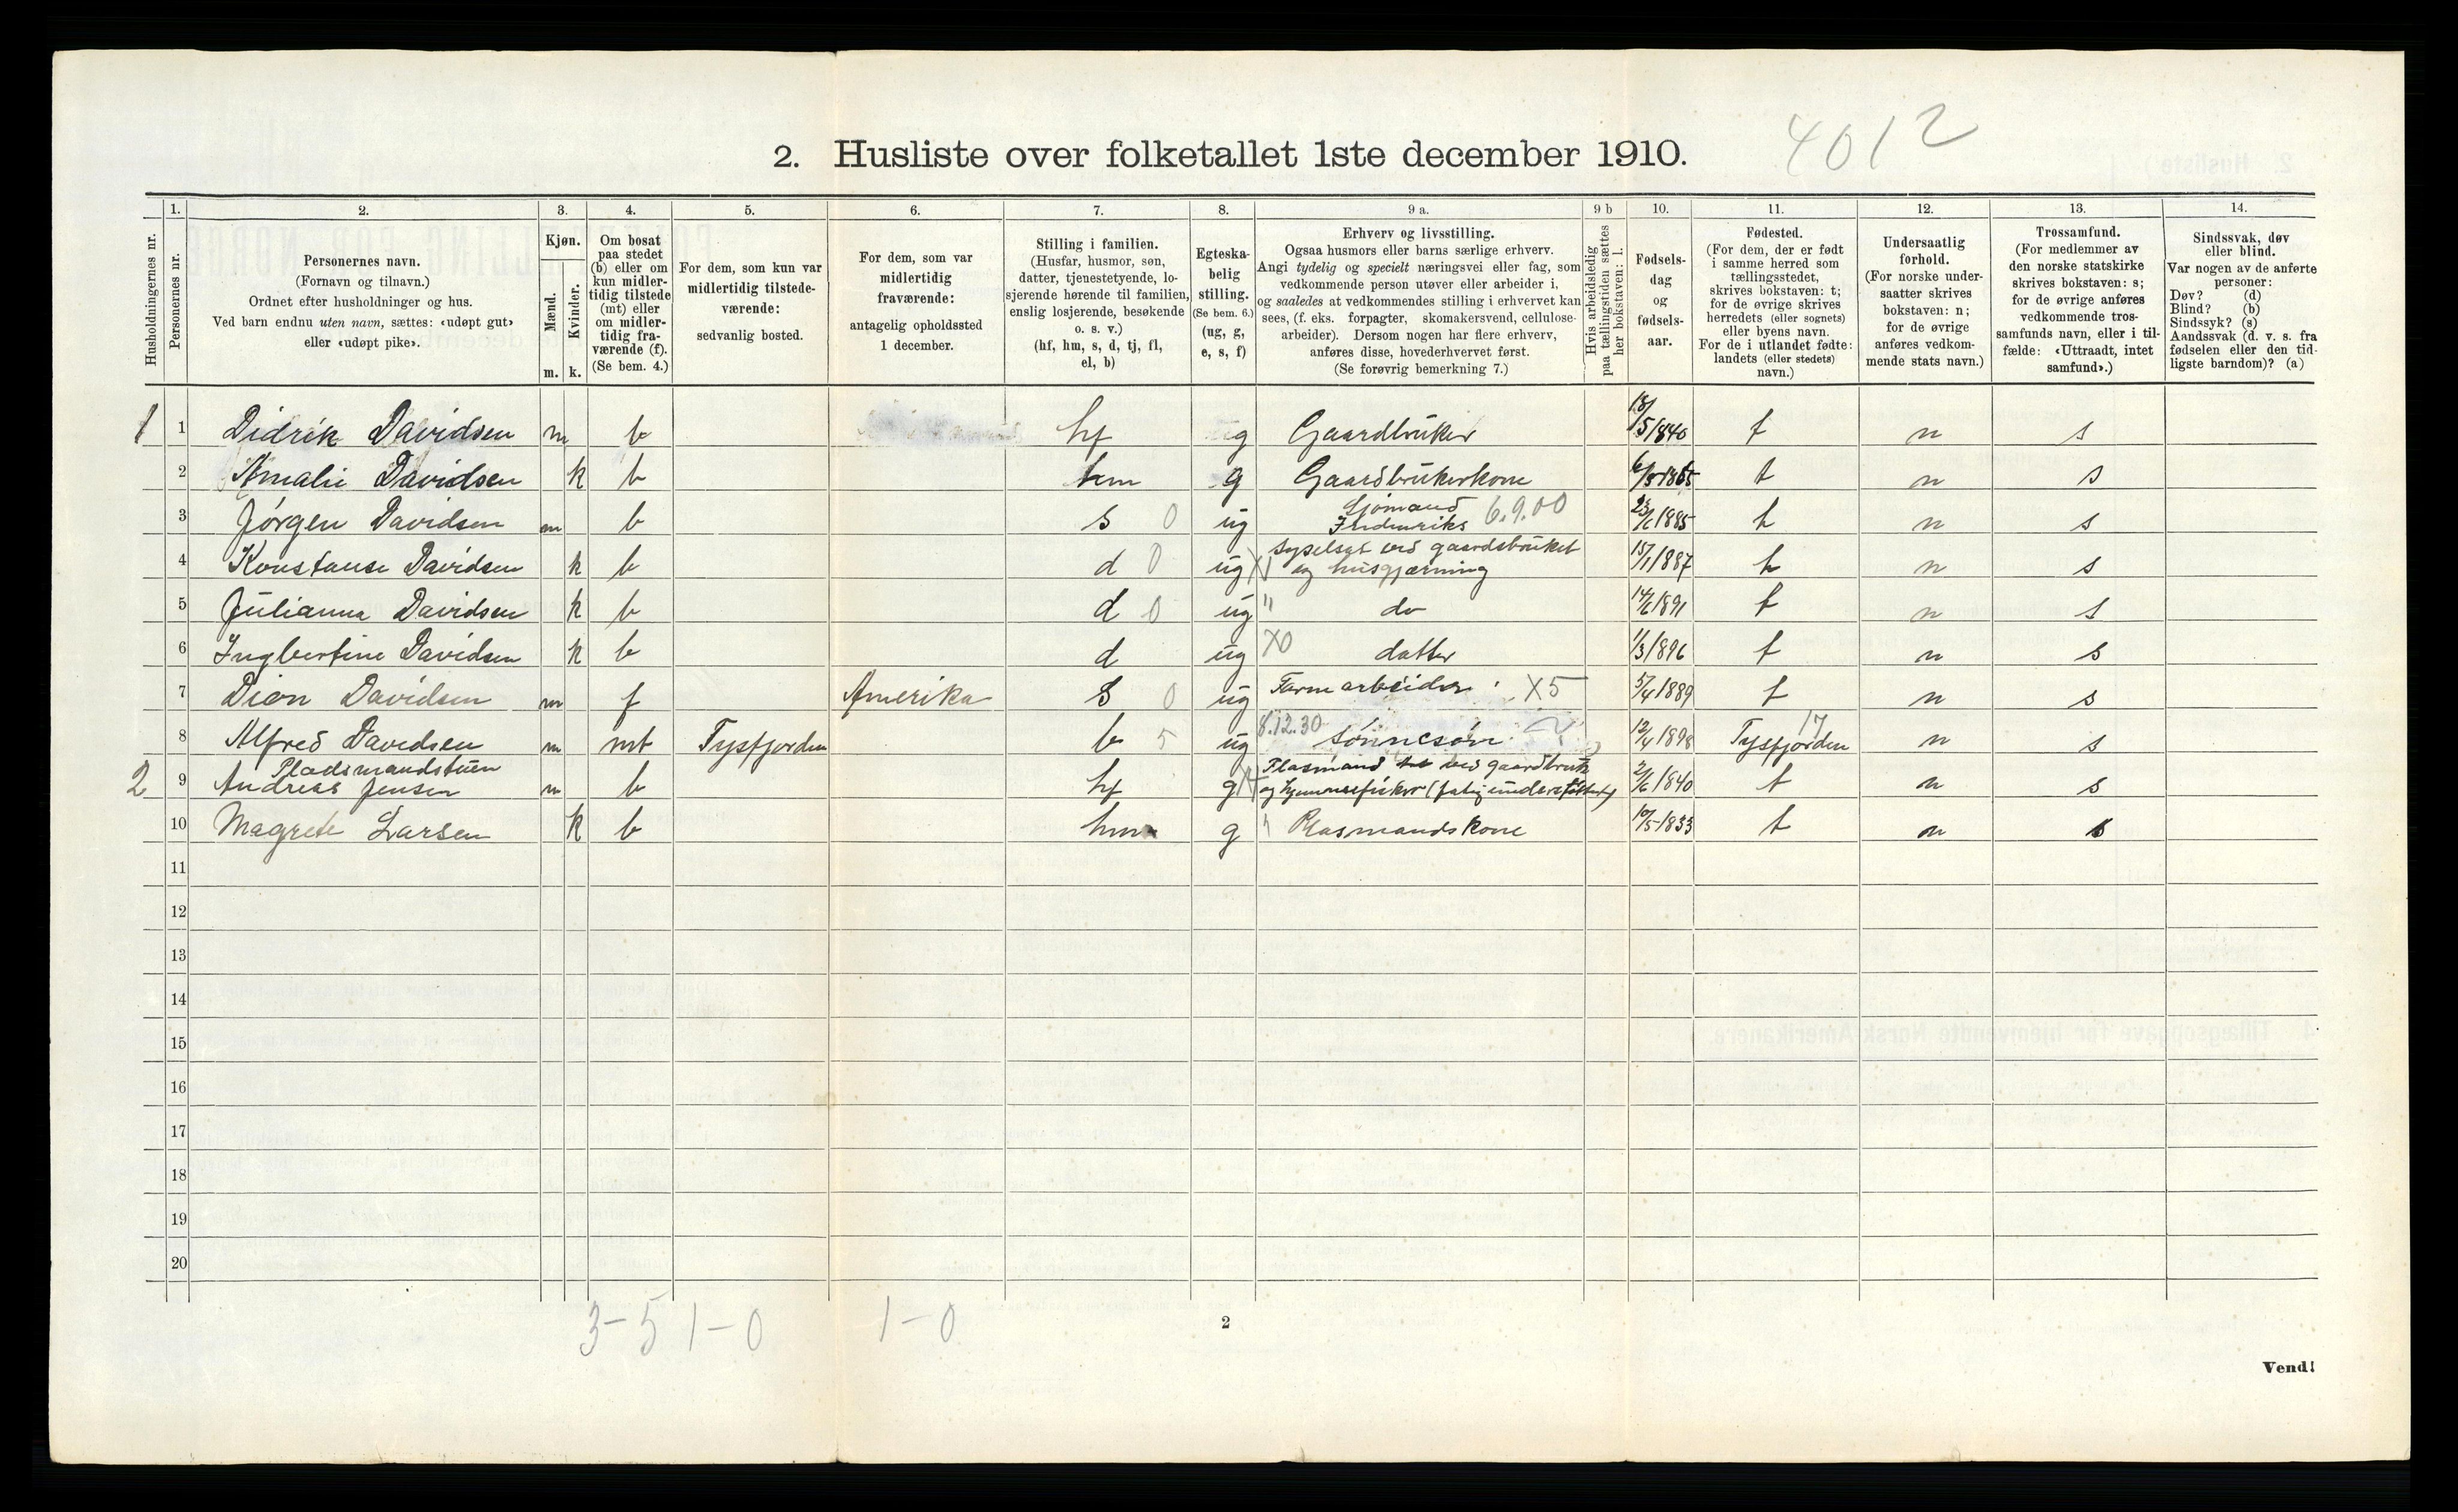 2. Husliste over folketallet 1ste december 1910.
4012
Husholdningernes nr.
1.
Personernes nr.
2.
Personernes navn.
(Fornavn og tilnavn.)
Ordnet efter husholdninger og hus.
Ved barn endnu uten navn, sættes: «udøpt gut»
eller «udøpt pike».
3.
Kjøn.
Mænd.
Kvinder.
m. k.
4.
Om bosat
paa stedet
(b) eller om
kun midler-
tidig tilstede
(mt) eller
om midler-
tidig fra-
værende (f).
(Se bem. 4.)
5.
For dem, som kun var
midlertidig tilstede-
værende:
sedvanlig bosted.
6.
For dem, som var
midlertidig
fraværende:
antagelig opholdssted
1 december.
7.
Stilling i familien.
(Husfar, husmor, søn,
datter, tjenestetyende, lo-
sjerende hørende til familien,
enslig losjerende, besøkende
o. s. v.)
(hf, hm, s, d, tj, fl,
el, b)
8.
Egteska-
belig
stilling.
(Se bem. 6.)
(ug, g,
e, s, f)
9 a.
Erhverv og livsstilling.
Ogsaa husmors eller barns særlige erhverv.
Angi tydelig og specielt næringsvei eller fag, som
vedkommende person utøver eller arbeider i,
og saaledes at vedkommendes stilling i erhvervet kan
sees, (f. eks. forpagter, skomakersvend, cellulose-
arbeider). Dersom nogen har flere erhverv,
anføres disse, hovederhvervet først.
(Se forøvrig bemerkning 7.)
9 b
Hvis arbeidsledig
paa tællingstiden sættes
her bokstaven: l.
10.
Fødsels-
dag
og
fødsels-
aar.
11.
Fødested.
(For dem, der er født
i samme herred som
tællingsstedet,
skrives bokstaven: t;
for de øvrige skrives
herredets (eller sognets)
eller byens navn.
For de i utlandet fødte:
landets (eller stedets)
navn.)
12.
Undersaatlig
forhold.
(For norske under-
saatter skrives
bokstaven: n;
for de øvrige
anføres vedkom-
mende stats navn.)
13.
Trossamfund.
(For medlemmer av
den norske statskirke
skrives bokstaven: s;
for de øvrige anføres
vedkommende tros-
samfunds navn, eller i til-
fælde: «Uttraadt, intet
samfund».)
14.
Sindssvak, døv
eller blind.
Var nogen av de anførte
personer:
Døv? (d)
Blind? (b)
Sindssyk? (s)
Aandssvak (d. v. s. fra
fødselen eller den tid-
ligste barndom)? (a)
1 1 Didrik Davidsen m b hf g Gaardbruker 18/5/840 t n s
2 Amalie Davidsen k b hm g Gaardbrukerkone t n s
3 Jørgen Davidsen m b s 0 ug Sjømand
Indenriks 6.9.00 t n s
4 Konstanse Davidsen k b d 0 ug syselsat ved gaardsbruket
og husgjærning 15/1/1887 t n s
5 Julianna Davidsen k b d 0 ug " do 14/6/1891 t n s
6 Ingbertine Davidsen k b d ug X0 datter 1/3/1896 t n s
7 Dion Davidsen m f Amerika s 0 ug Farmarbeider X5 5/4/1889 t n s
8 Alfred Davidsen m mt Tysfjorden b 5 ug 8.12.30 sønnesøn 12/4/1898 Tysfjorden 17 n s
Pladsmandstuen
2 9 Andreas Jensen m b hf g Plasmand ved gaardbruk
og hjemmefisker 2/6/1840 t n s
10 Magrete Larsen k b hm g " Plasmandskone 10/5/1833 t n s
11
12
13
14
15
16
17
18
19
20
3-5 1-0 1-0
2
Vend!